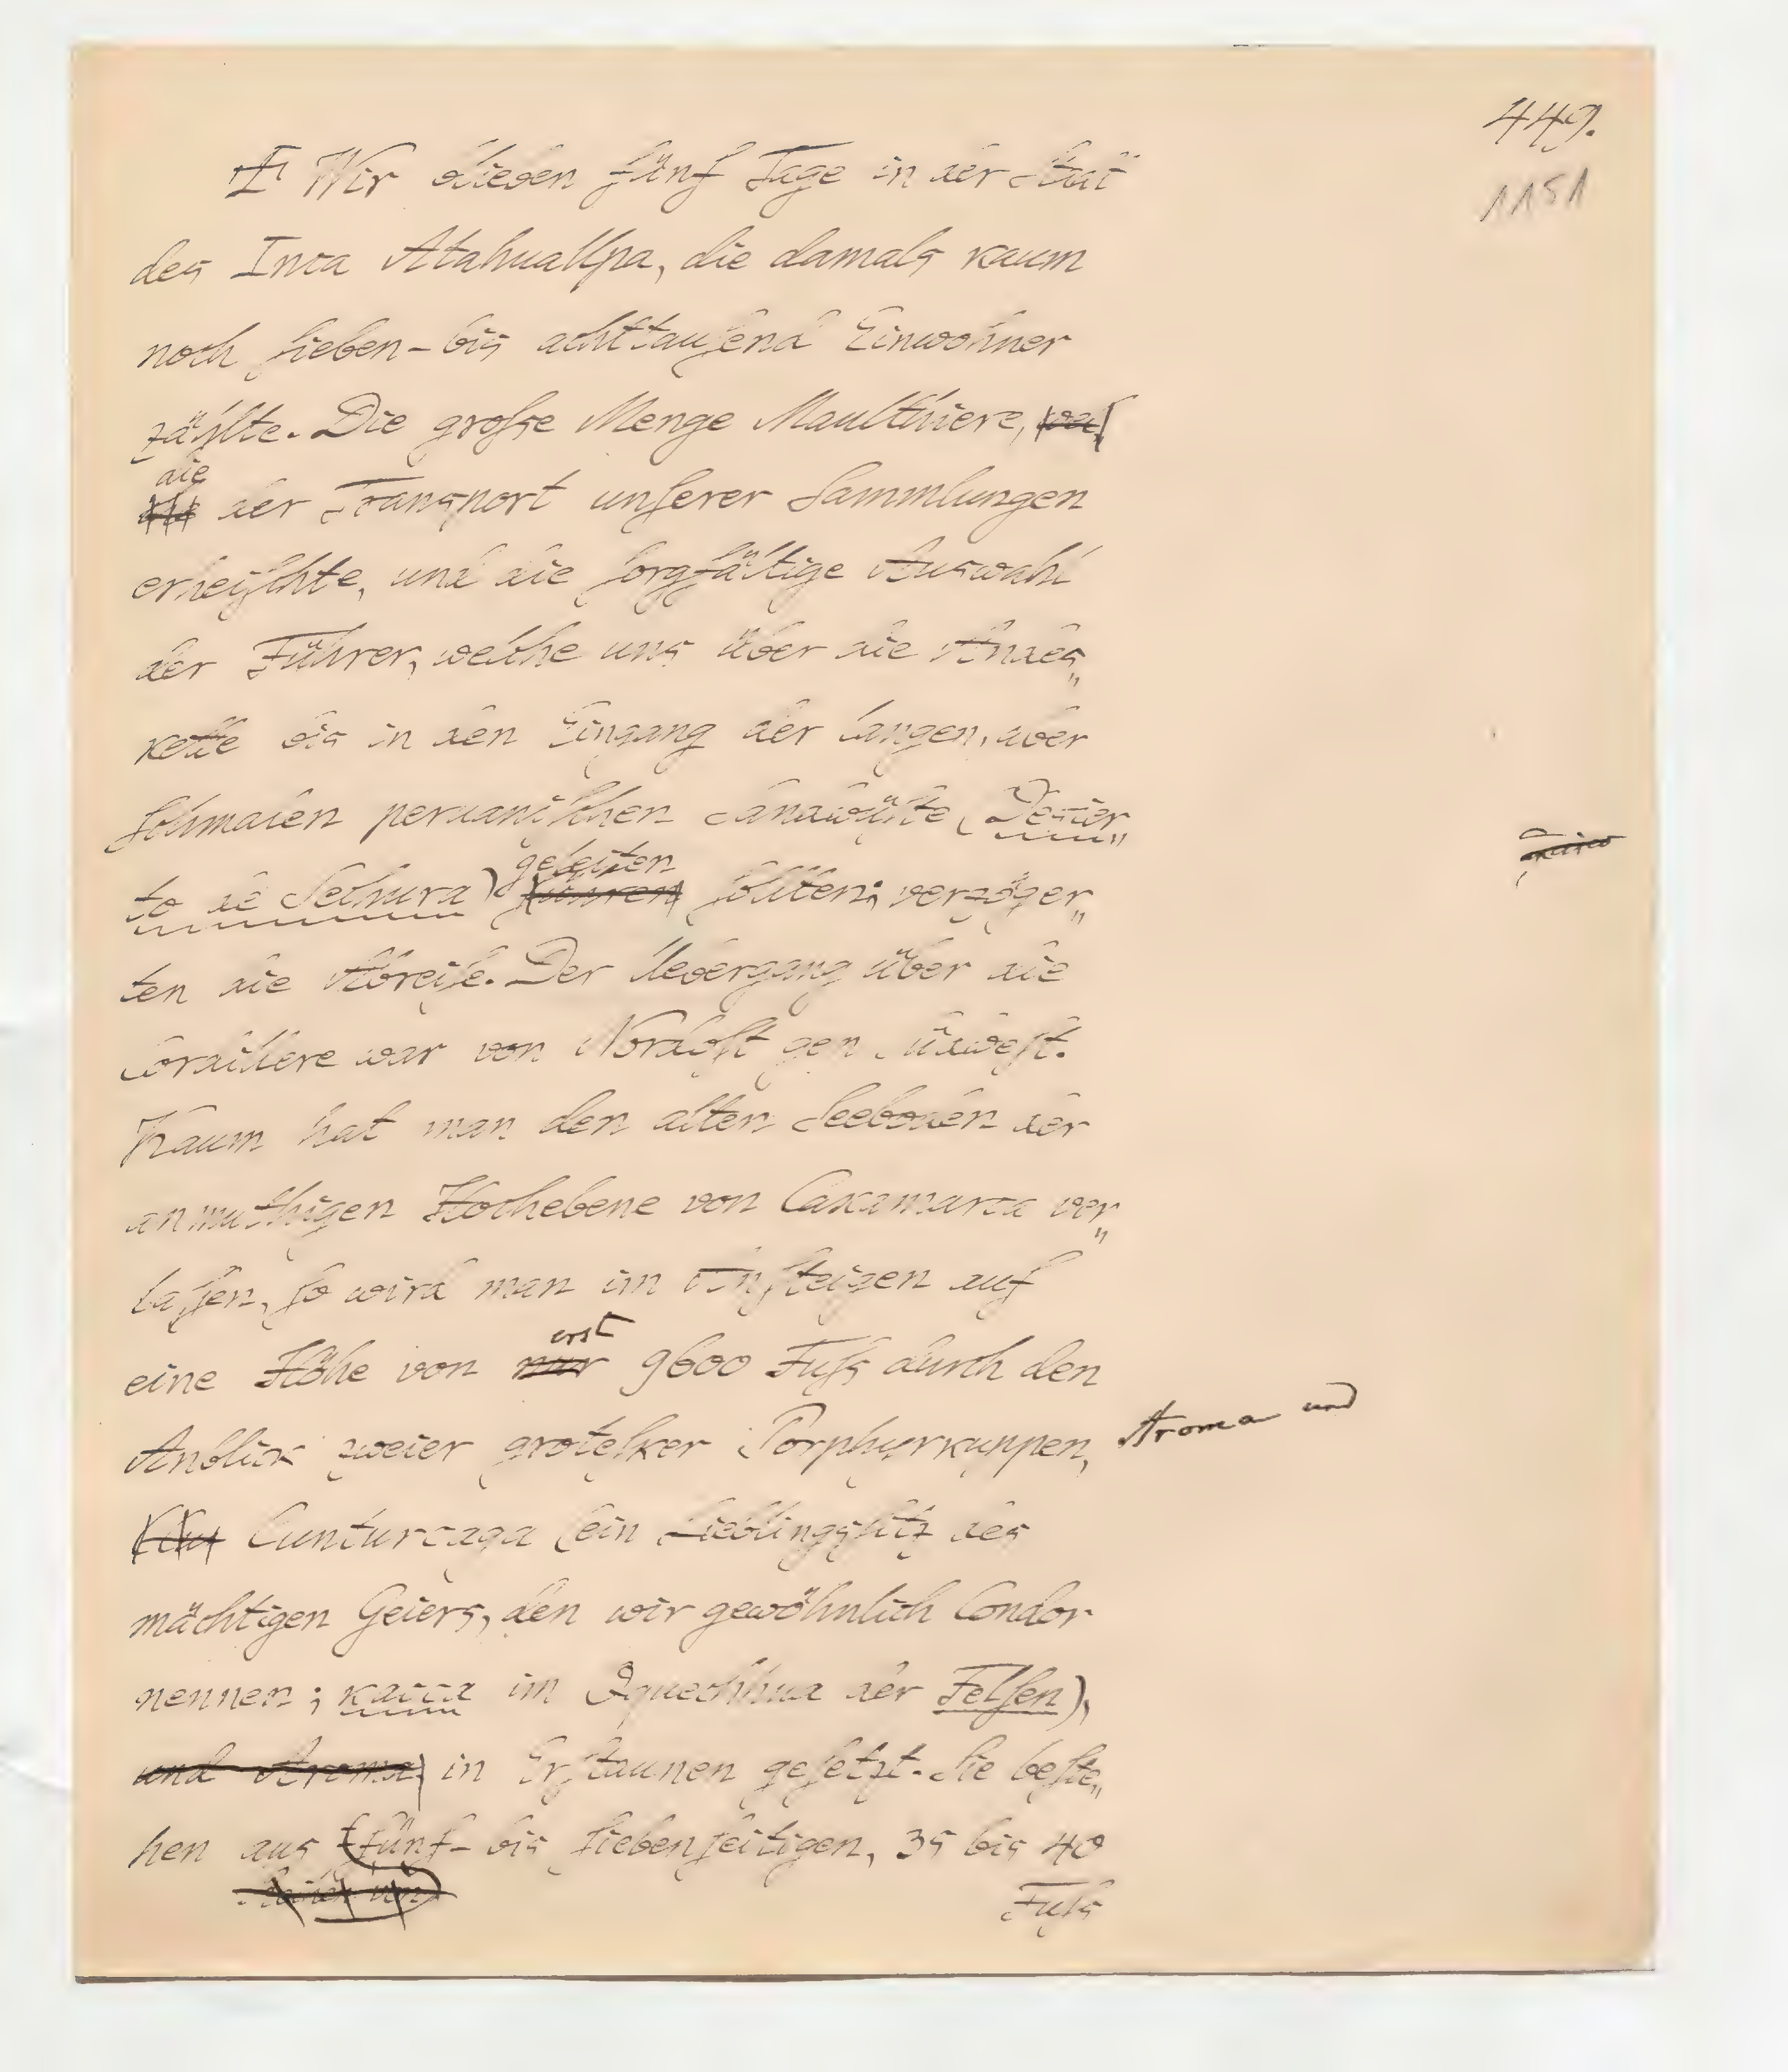 449.
1151
Wir blieben fünf Tage in der Stadt
des Inca Atahuallpa, die damals kaum
noch sieben- bis achttausend Einwohner
zählte. Die große Menge Maulthiere,
die
der Transport unserer Sammlungen
erheischte, und die sorgfältige Auswahl
der Führer, welche uns über die Andes„
kette bis in den Eingang der langen, aber
schmalen peruanischen Sandwüste (Desier„
geleiten
to de Sechura) führen sollten; verzöger„
ten die Abreise. Der Uebergang über die
Cordillere war von Nordost gen Südwest.
Kaum hat man den alten Seeboden der
anmuthigen Hochebene von Caxamarca ver„
lassen, so wird man im Ansteigen auf
erst
eine Höhe von nur 9600 Fuß durch den
Anblick zweier grotesker Porphyrkuppen, Aroma und
Cunturcaga (ein Lieblingssitz des
mächtigen Geiers, den wir gewöhnlich Condor
nennen; kacca im Qquechhua der Felsen),
und Aroma, in Erstaunen gesetzt. Sie beste„
hen aus fünf- bis siebenseitigen, 35 bis 40
Fuß